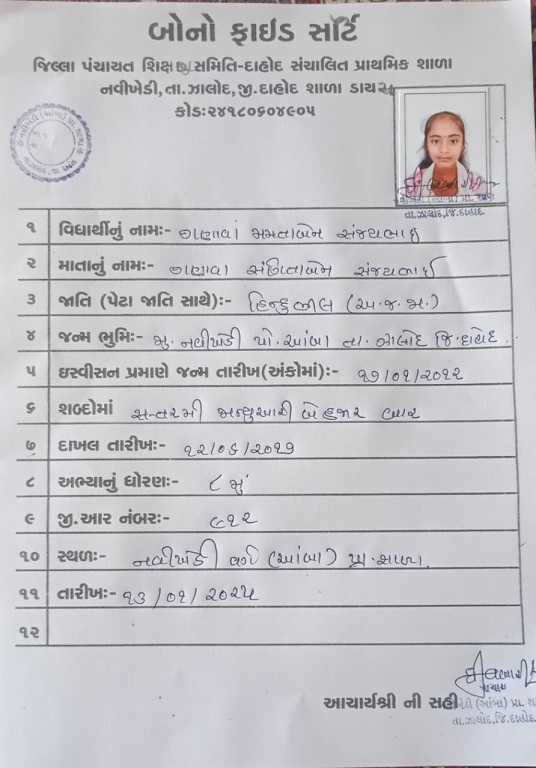 બોનો ફાઇડ સર્ટિ
જિલ્લા પંચાયત શિક્ષણ સમિતિ-દાહોદ સંચાલિત પ્રાથમિક શાળા
નવીખેડી,તા.ઝાલોદ,જી.દાહોદ શાળા ડાયસ
કોડઃ૨૪૧૮૦૬૦૪૯૦૫
તા.ઝાલોદ,જિ.દાહોદ
૧ વિદ્યાર્થીનું નામઃ- ગણાવા મમતાબેન સંજયભાઈ
૨ માતાનું નામઃ- ગણાવા સંગિતાબેન સંજયભાઈ
૩ જાતિ (પેટા જાતિ સાથે)ઃ- હિન્દુ ભીલ (અ.જ.જા.)
૪ જન્મ ભુમિઃ- મુ.નવીખેડી પો.આંબા તા.ઝાલોદ જિ.દાહોદ
૫ ઇસ્વીસન પ્રમાણે જન્મ તારીખ(અંકોમાં)ઃ- ૧૭/૦૧/૨૦૧૨
૬ શબ્દોમાં સત્તરમી જાન્યુઆરી બે હજાર બાર
૭ દાખલ તારીખઃ- ૧૨/૦૬/૨૦૧૭
૮ અભ્યાનું ધોરણઃ- ૮ મું
૯ જી.આર નંબરઃ- ૯૧૨
૧૦ સ્થળઃ- નવીખેડી વર્ગ (આંબા) પ્રા.શાળા
૧૧ તારીખઃ- ૧૩/૦૧/૨૦૨૫
૧૨
આચાર્યશ્રી ની સહી
તા.ઝાલોદ,જિ.દાહોદ